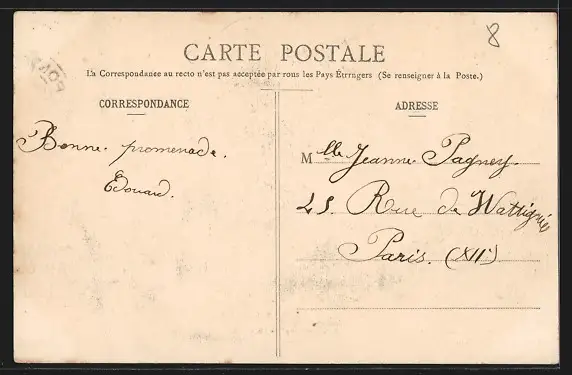 8
CARTE POSTALE
La Correspondance au recto n'est pas acceptée par tous les Pays Étrangers (Se renseigner à la Poste.)
CORRESPONDANCE
Bonne promenade.
Edouard.
ADRESSE
Mlle Jeanne Pagney.
25. Rue de Wattignies
Paris. (XIIe)